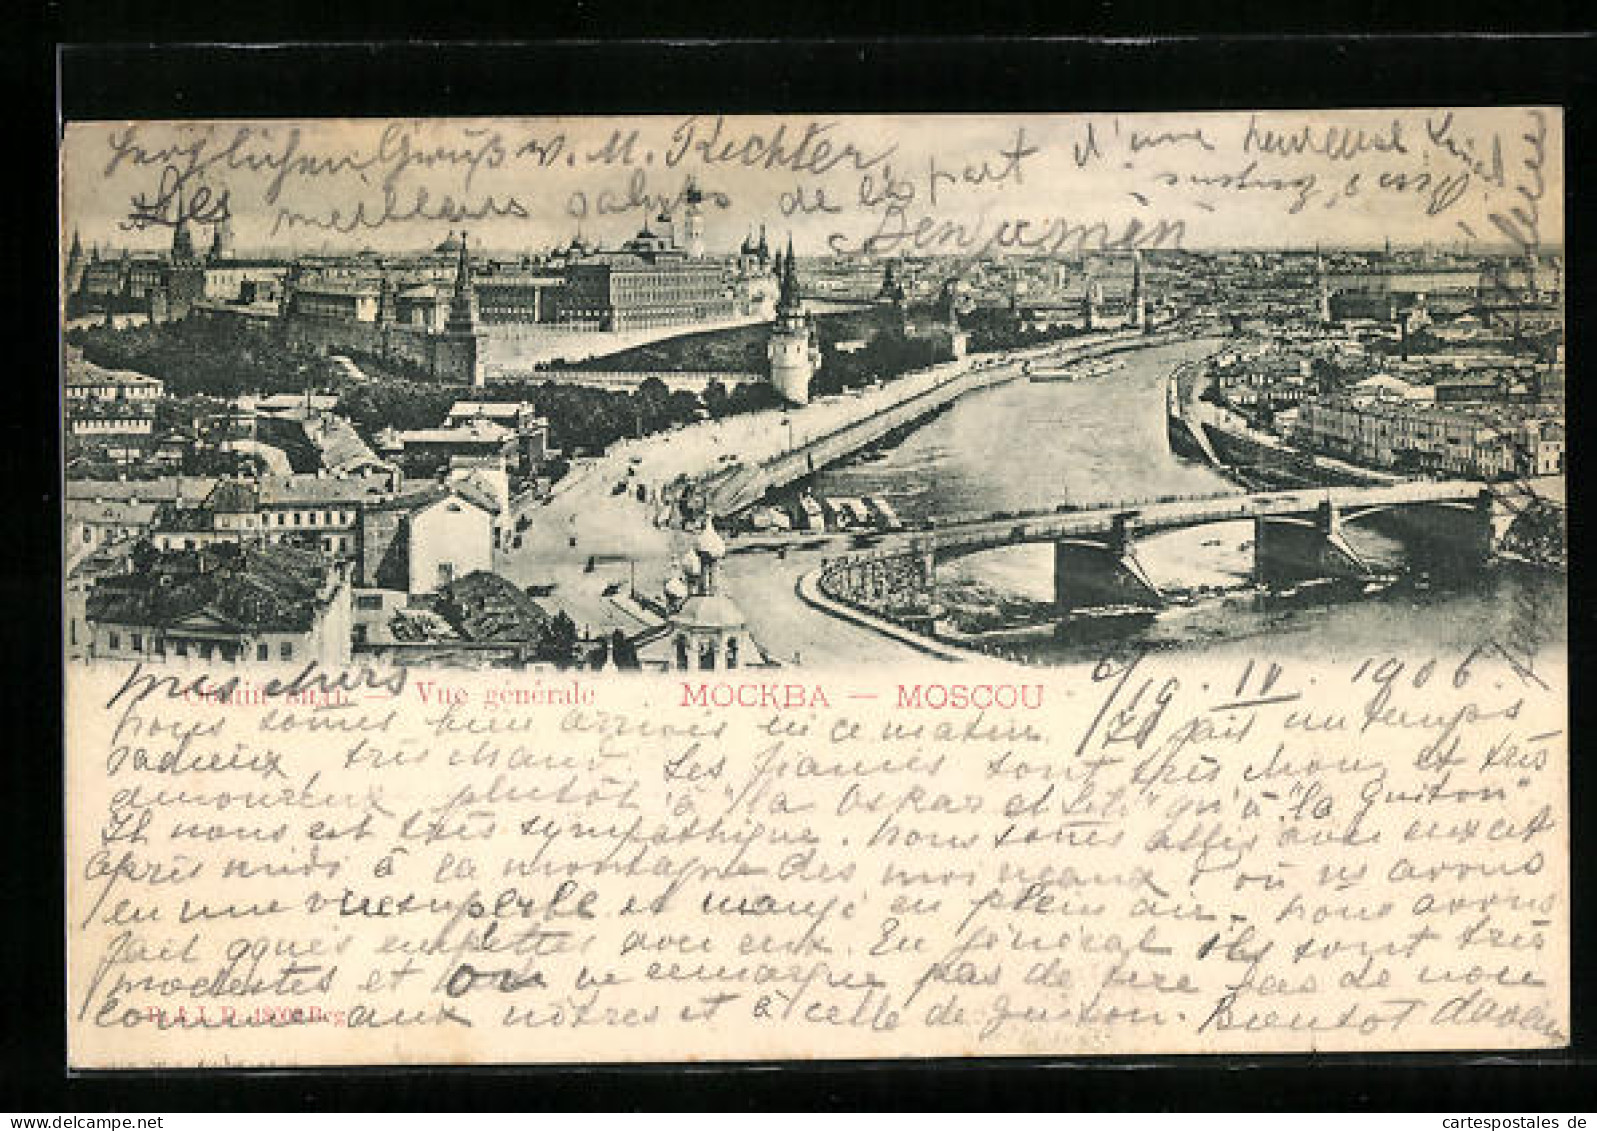 Herzlichen Gruß v. M. Richter
d'une heureuse
Les meilleurs de la part
Benjamin
mes chers
Общій видъ. — Vue générale МОСКВА — MOSCOU
6/19. IV. 1906.
nous somes bien arrivés ce matin. Il fait un temps
radieux, très chaud. Les fiancés sont très choux et très
amoureux, plutôt à "la Oskar et Lili" qu'à "la Guiton".
Il nous est très sympathique. Nous somes allés avec eux cet
après midi à la montagne des moineaux, où ns avons
eu une vue superbe et mangé en plein air. Nous avons
fait qques emplettes avec eux. En général ils sont très
modestes et on ne remarque pas de
comme aux nôtres et à celle de Guiton. Bientôt